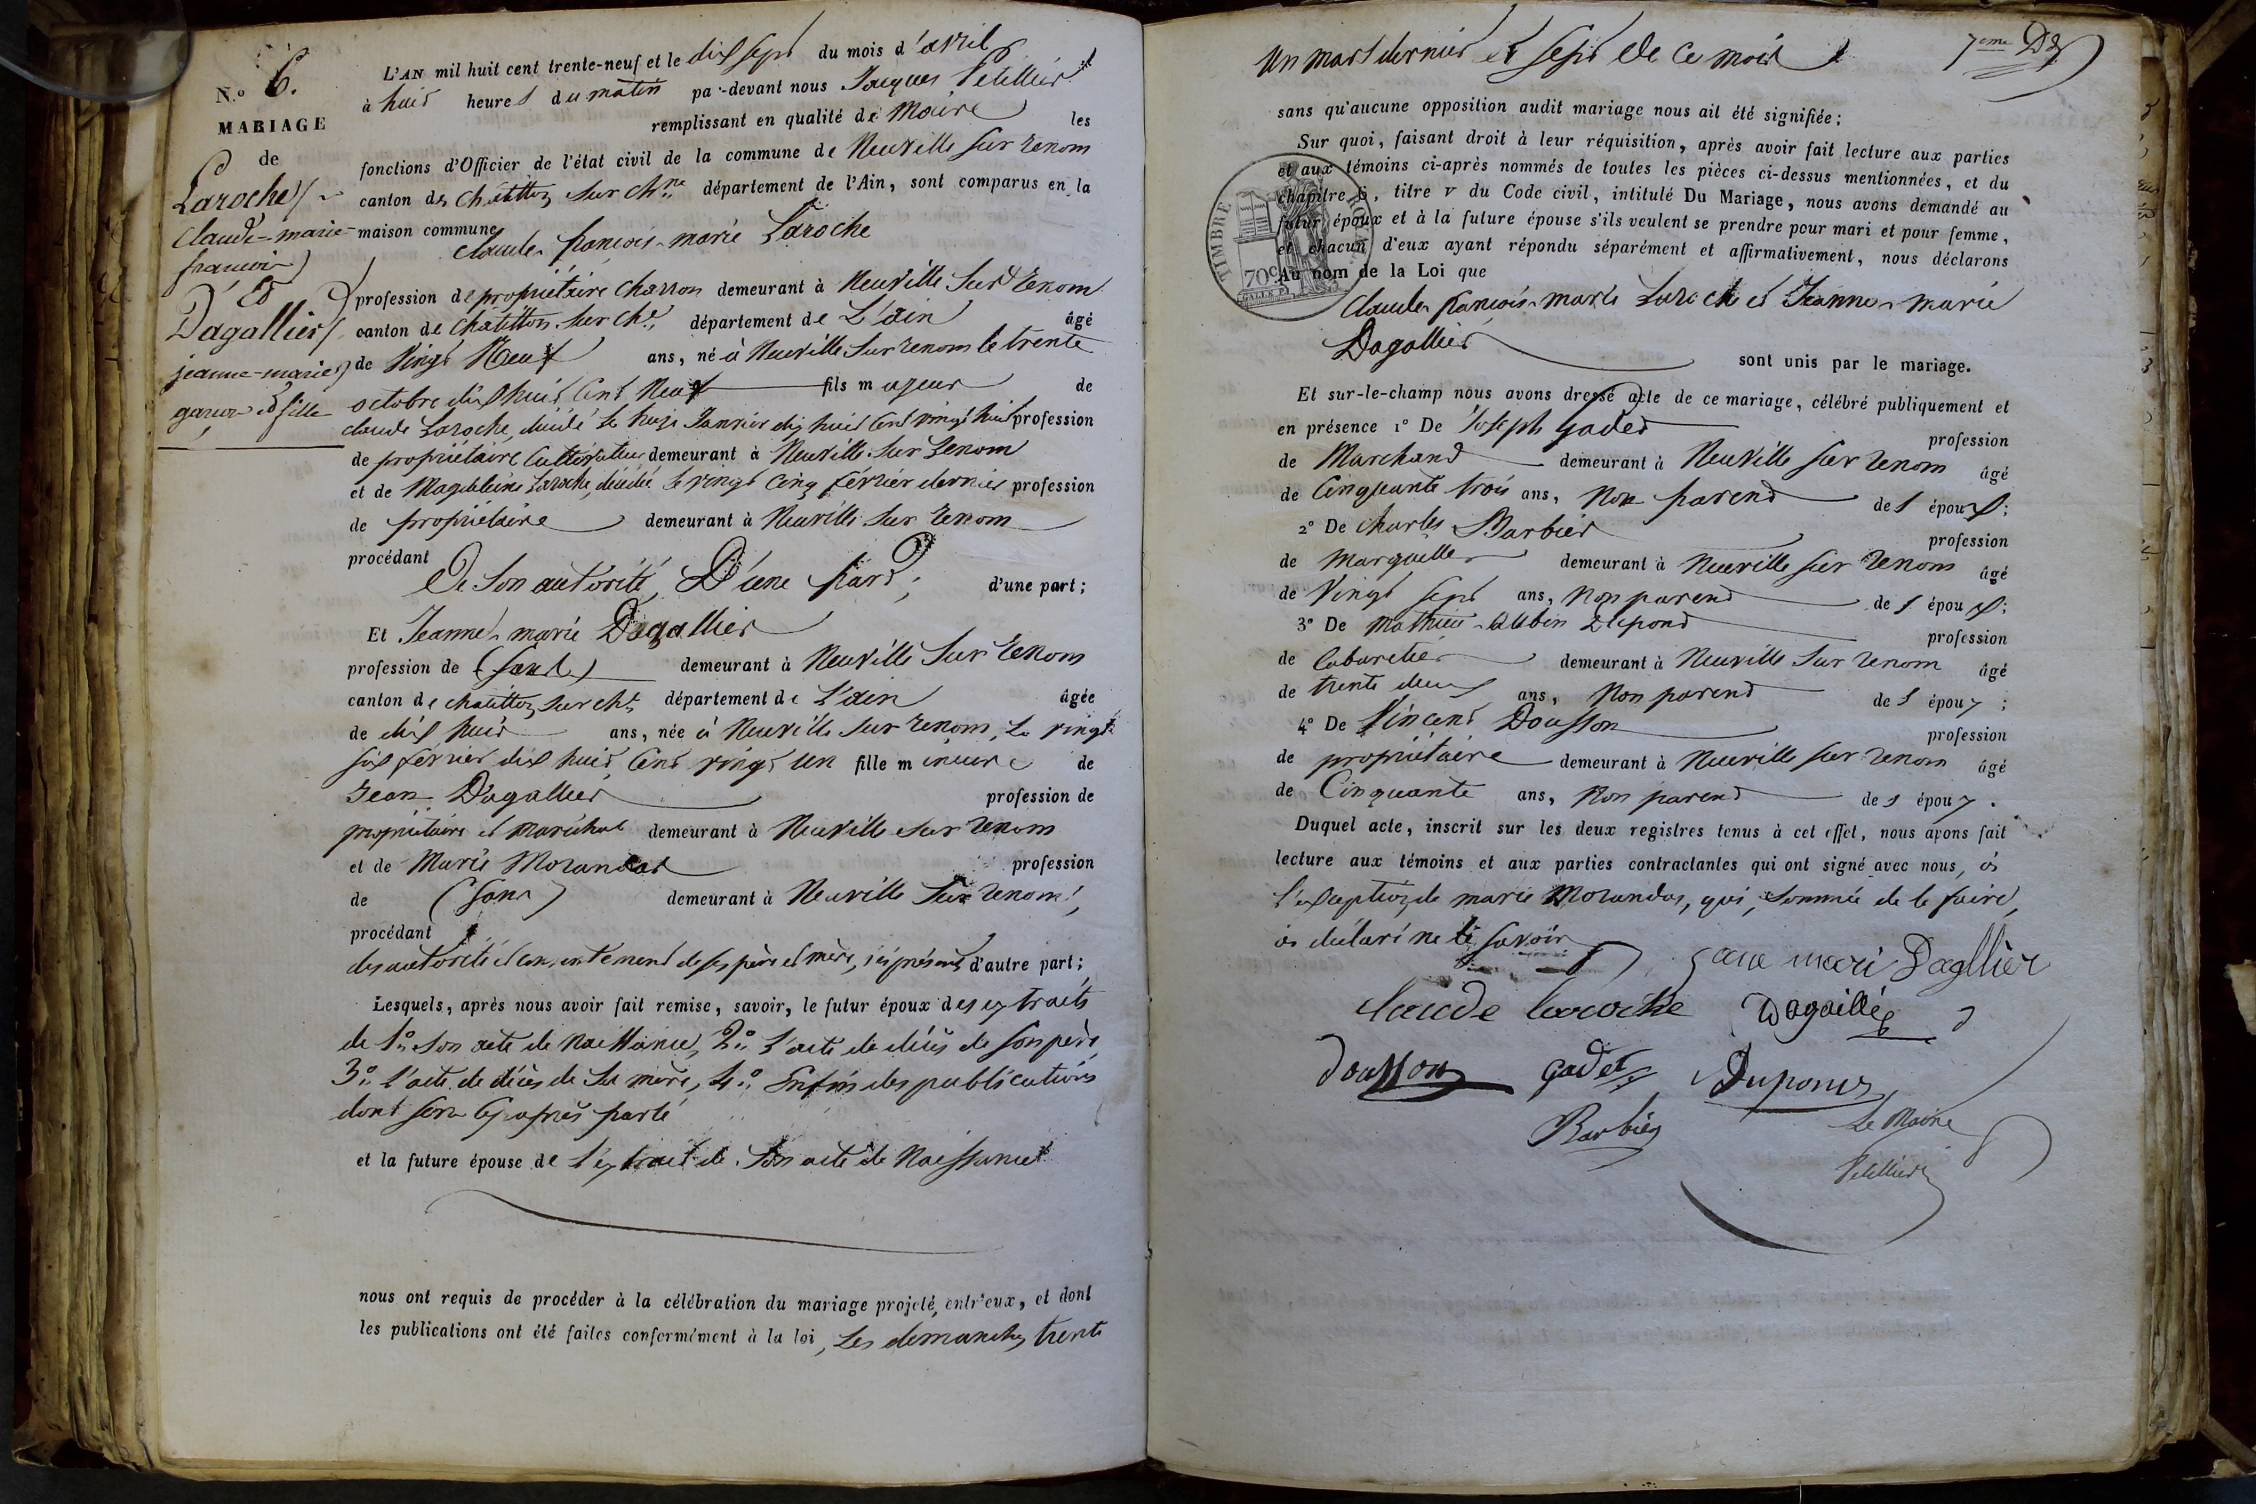 N.o 6.
MARIAGE
de
Laroche
Claude-marie-
françois
Et
Dagallier
jeanne-marie
garçon et fille
L'AN mil huit cent trente-neuf et le dix sept du mois d'avril
à huit heures du matin par-devant nous Jacques Pelillier
remplissant en qualité de Maire les
fonctions d'Officier de l'état civil de la commune de Neuville sur renom
canton de Châtillon sur Ch.ne département de l'Ain, sont comparus en la
maison commune
Claude françois marie Laroche
profession de propriétaire charron demeurant à Neuville Sur renom
canton de Châtillon sur Ch.e département de L'ain âgé
de Vingt Neuf ans, né à Neuville Sur renom le trente
octobre dix huit Cent Neuf fils majeur de
claude Laroche, décédé le Janvier dix huit Cent vingt huit profession
de propriétaire Cultivateur demeurant à Neuville Sur renom
et de Magdeleine Laroche, décédée le vingt Cinq février dernier profession
de propriétaire demeurant à Neuville Sur renom
procédant
De Son autorité, D'une part, d'une part;
Et Jeanne marie Dagallier
profession de (Sans) demeurant à Neuville Sur renom
canton de châtillon sur ch. département de L'ain âgée
de dix huit ans, née à Neuville sur renom, Le vingt
six février dix huit Cent vingt un fille mineure de
Jean Dagallier profession de
propriétaire et maréchal demeurant à Neuville sur renom
et de Marie Morandas profession
de (Sans) demeurant à Neuville Sur renom,
procédant
des autorité et consentement de ses père et mère, ici présents d'autre part;
Lesquels, après nous avoir fait remise, savoir, le futur époux des extraits
de 1.o Son acte de Naissance, 2.o L'acte de décès de Son père,
3.o L'acte de décès de Sa mère, 4.o Enfin des publications
dont sera Cy après parlé
et la future épouse de l'extrait de Son acte de Naissance
nous ont requis de procéder à la célébration du mariage projeté entr'eux, et dont
les publications ont été faites conformément à la loi, Les dimanches trente
un mars dernier et sept de ce mois
7eme
sans qu'aucune opposition audit mariage nous ait été signifiée;
Sur quoi, faisant droit à leur réquisition, après avoir fait lecture aux parties
et aux témoins ci-après nommés de toutes les pièces ci-dessus mentionnées, et du
chapitre 6, titre v du Code civil, intitulé Du Mariage, nous avons demandé au
futur époux et à la future épouse s'ils veulent se prendre pour mari et pour femme,
et chacun d'eux ayant répondu séparément et affirmativement, nous déclarons
Au nom de la Loi que
TIMBRE ROYAL
70c
Claude françois marie Laroche et Jeanne marie
Dagallier sont unis par le mariage.
Et sur-le-champ nous avons dressé acte de ce mariage, célébré publiquement et
en présence 1° De Joseph Gadet profession
de Marchand demeurant à Neuville sur renom âgé
de Cinquante trois ans, Non parent des époux;
2° De Charles Barbier profession
de Marguiller demeurant à Neuville sur renom âgé
de Vingt sept ans, Non parent des époux;
3° De Mathieu Aubin Dupond profession
de Cabaretier demeurant à Neuville sur renom âgé
de trente deux ans, Non parent des époux;
4° De Vincent Dousson profession
de propriétaire demeurant à Neuville sur renom âgé
de Cinquante ans, Non parent des époux.
Duquel acte, inscrit sur les deux registres tenus à cet effet, nous avons fait
lecture aux témoins et aux parties contractantes qui ont signé avec nous, à
l'exception de marie Morandas, qui, sommée de le faire,
à déclaré ne le savoir
jane mari Dagllier
Claude laroche Dagaillé
Dousson gadet Duponer
Barbier Le Maire
Pelillier